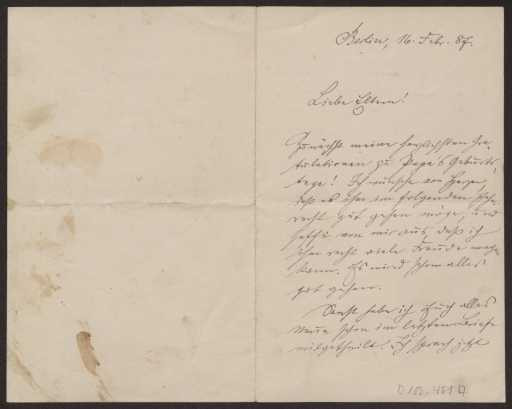 Berlin, 16. Febr. 87.
Liebe Eltern!
Zunächst meine herzlichsten Gra-
tulationen zu Papa's Geburts-
tage! Ich wünsche von Herzen,
daß es ihm im folgenden Jahre
recht gut gehen möge, und
von mir aus, daß ich
ihm recht viele Freude mache
kann. Es wird schon alles
gut gehen.
Sonst habe ich Euch alles
Neue schon im letzten Briefe
mitgetheilt. Ich sprach jetzt